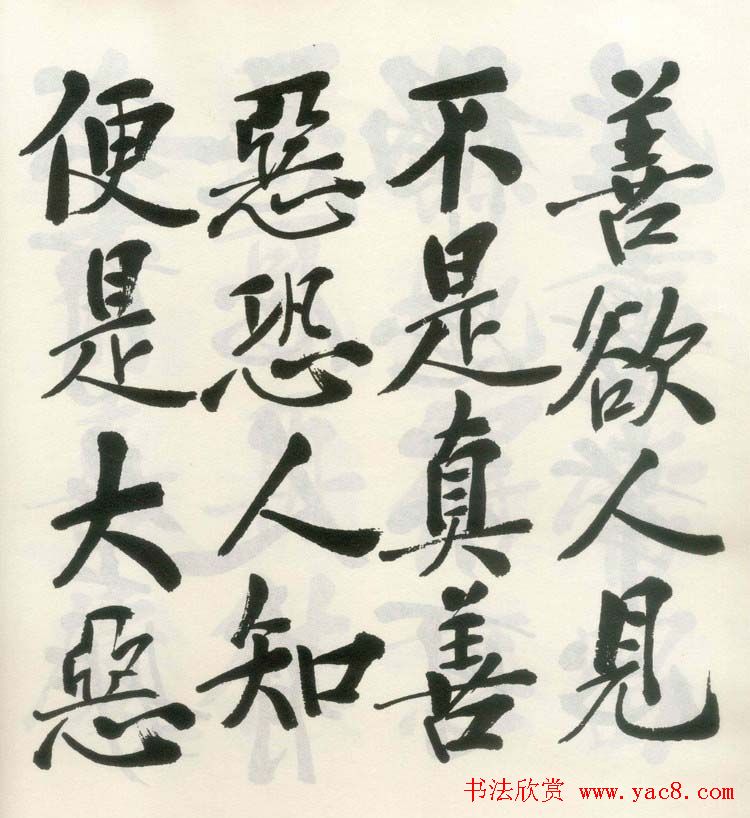 善欲人見
不是真善
惡恐人知
便是大惡
书法欣赏 www.yac8.com